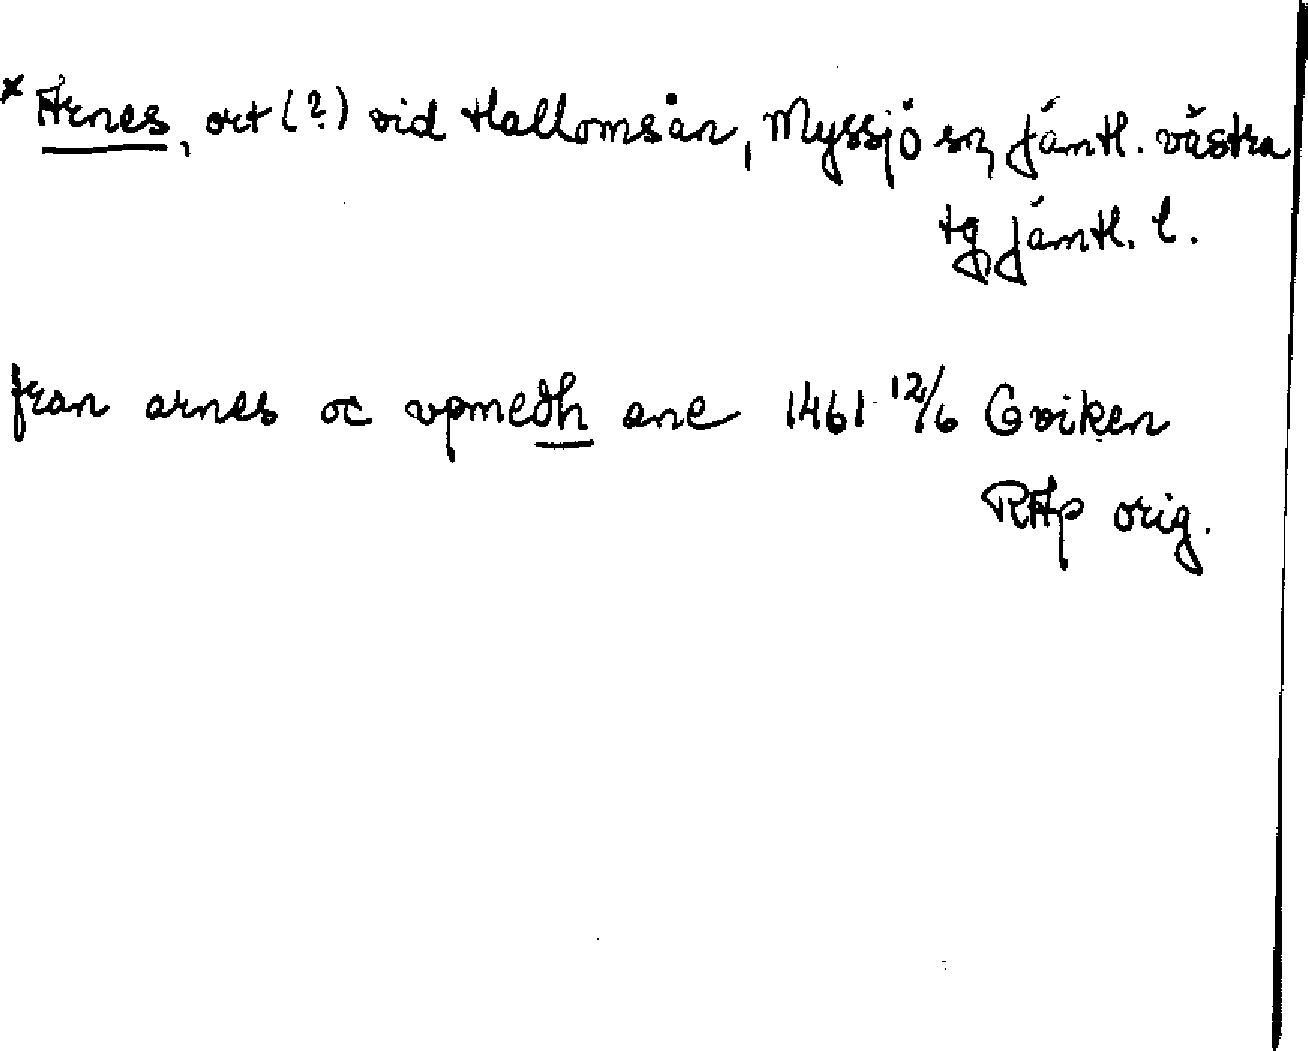 * Arnes, ort (?) vid Hallomsån, Myssjö sn, Jämtl. västra
tg Jämtl. l.
fran arnes oc vpmedh ane 1461 12/6 Oviken
RAp orig.